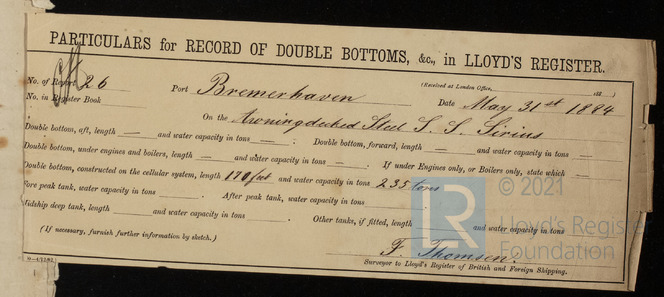 PARTICULARS for RECORD OF DOUBLE BOTTOMS, &c., in LLOYD'S REGISTER.
No. of Report 26 Port Bremerhaven (Received at London Office, 188 )
No. in Register Book Date May 31st 1884
On the Awningdecked Steel S. S. Sirius
Double bottom, aft, length — and water capacity in tons — . Double bottom, forward, length — and water capacity in tons —
Double bottom, under engines and boilers, length — and water capacity in tons — . If under Engines only, or Boilers only, state which —
Double bottom, constructed on the cellular system, length 170 feet and water capacity in tons 235 tons
Fore peak tank, water capacity in tons . After peak tank, water capacity in tons .
Midship deep tank, length and water capacity in tons . Other tanks, if fitted, length and water capacity in tons
(If necessary, furnish further information by sketch.)
F. Thomsen.
Surveyor to Lloyd's Register of British and Foreign Shipping.
LR
© 2021
Lloyd's Register
Foundation